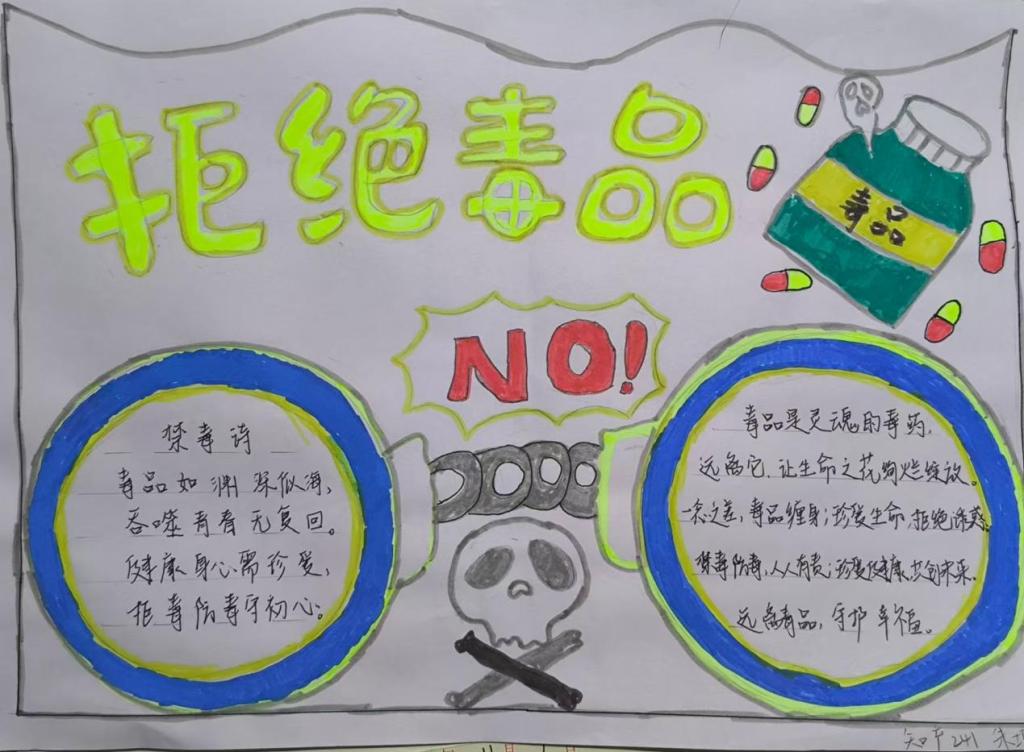 拒绝毒品
毒品
NO!
禁毒诗
毒品如渊深似海,
吞噬青春无复回。
健康身心需珍爱,
拒毒防毒守初心。
毒品是灵魂的毒药,
远离它,让生命之花绚烂绽放。
一念之差,毒品缠身,珍爱生命,拒绝诱惑。
禁毒防毒,人人有责,珍爱健康,共创未来。
远离毒品,守护幸福。
241